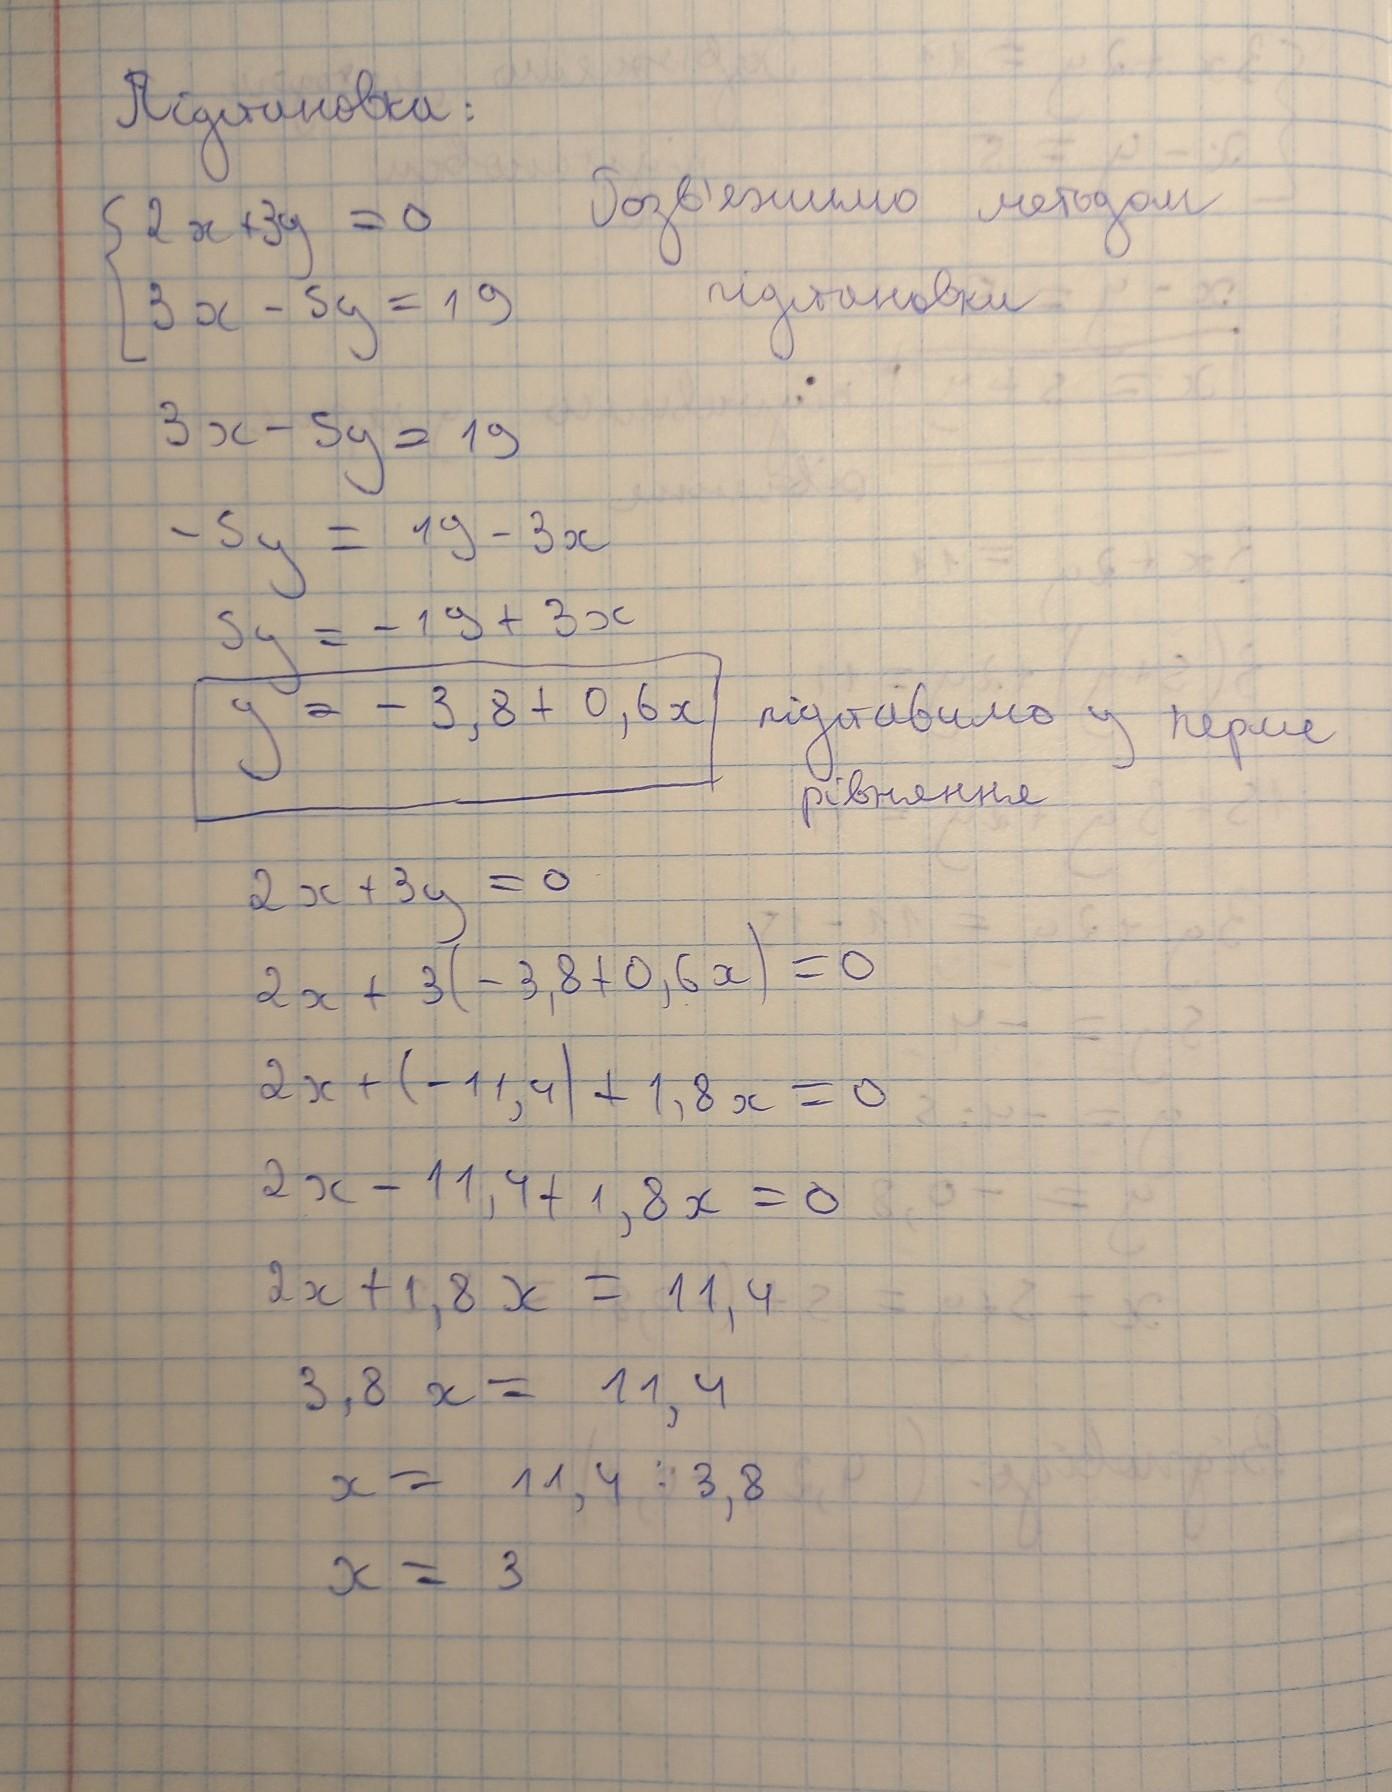 Підстановка:
{ 2x+3y = 0 Розв'яжимо методом
3x - 5y = 19 підстановки
3x - 5y = 19
-5y = 19 - 3x
5y = -19 + 3x
y = -3,8 + 0,6x підставимо у перше
рівняння
2x + 3y = 0
2x + 3(-3,8+0,6x) = 0
2x + (-11,4) + 1,8x = 0
2x - 11,4 + 1,8x = 0
2x + 1,8x = 11,4
3,8x = 11,4
x = 11,4 : 3,8
x = 3